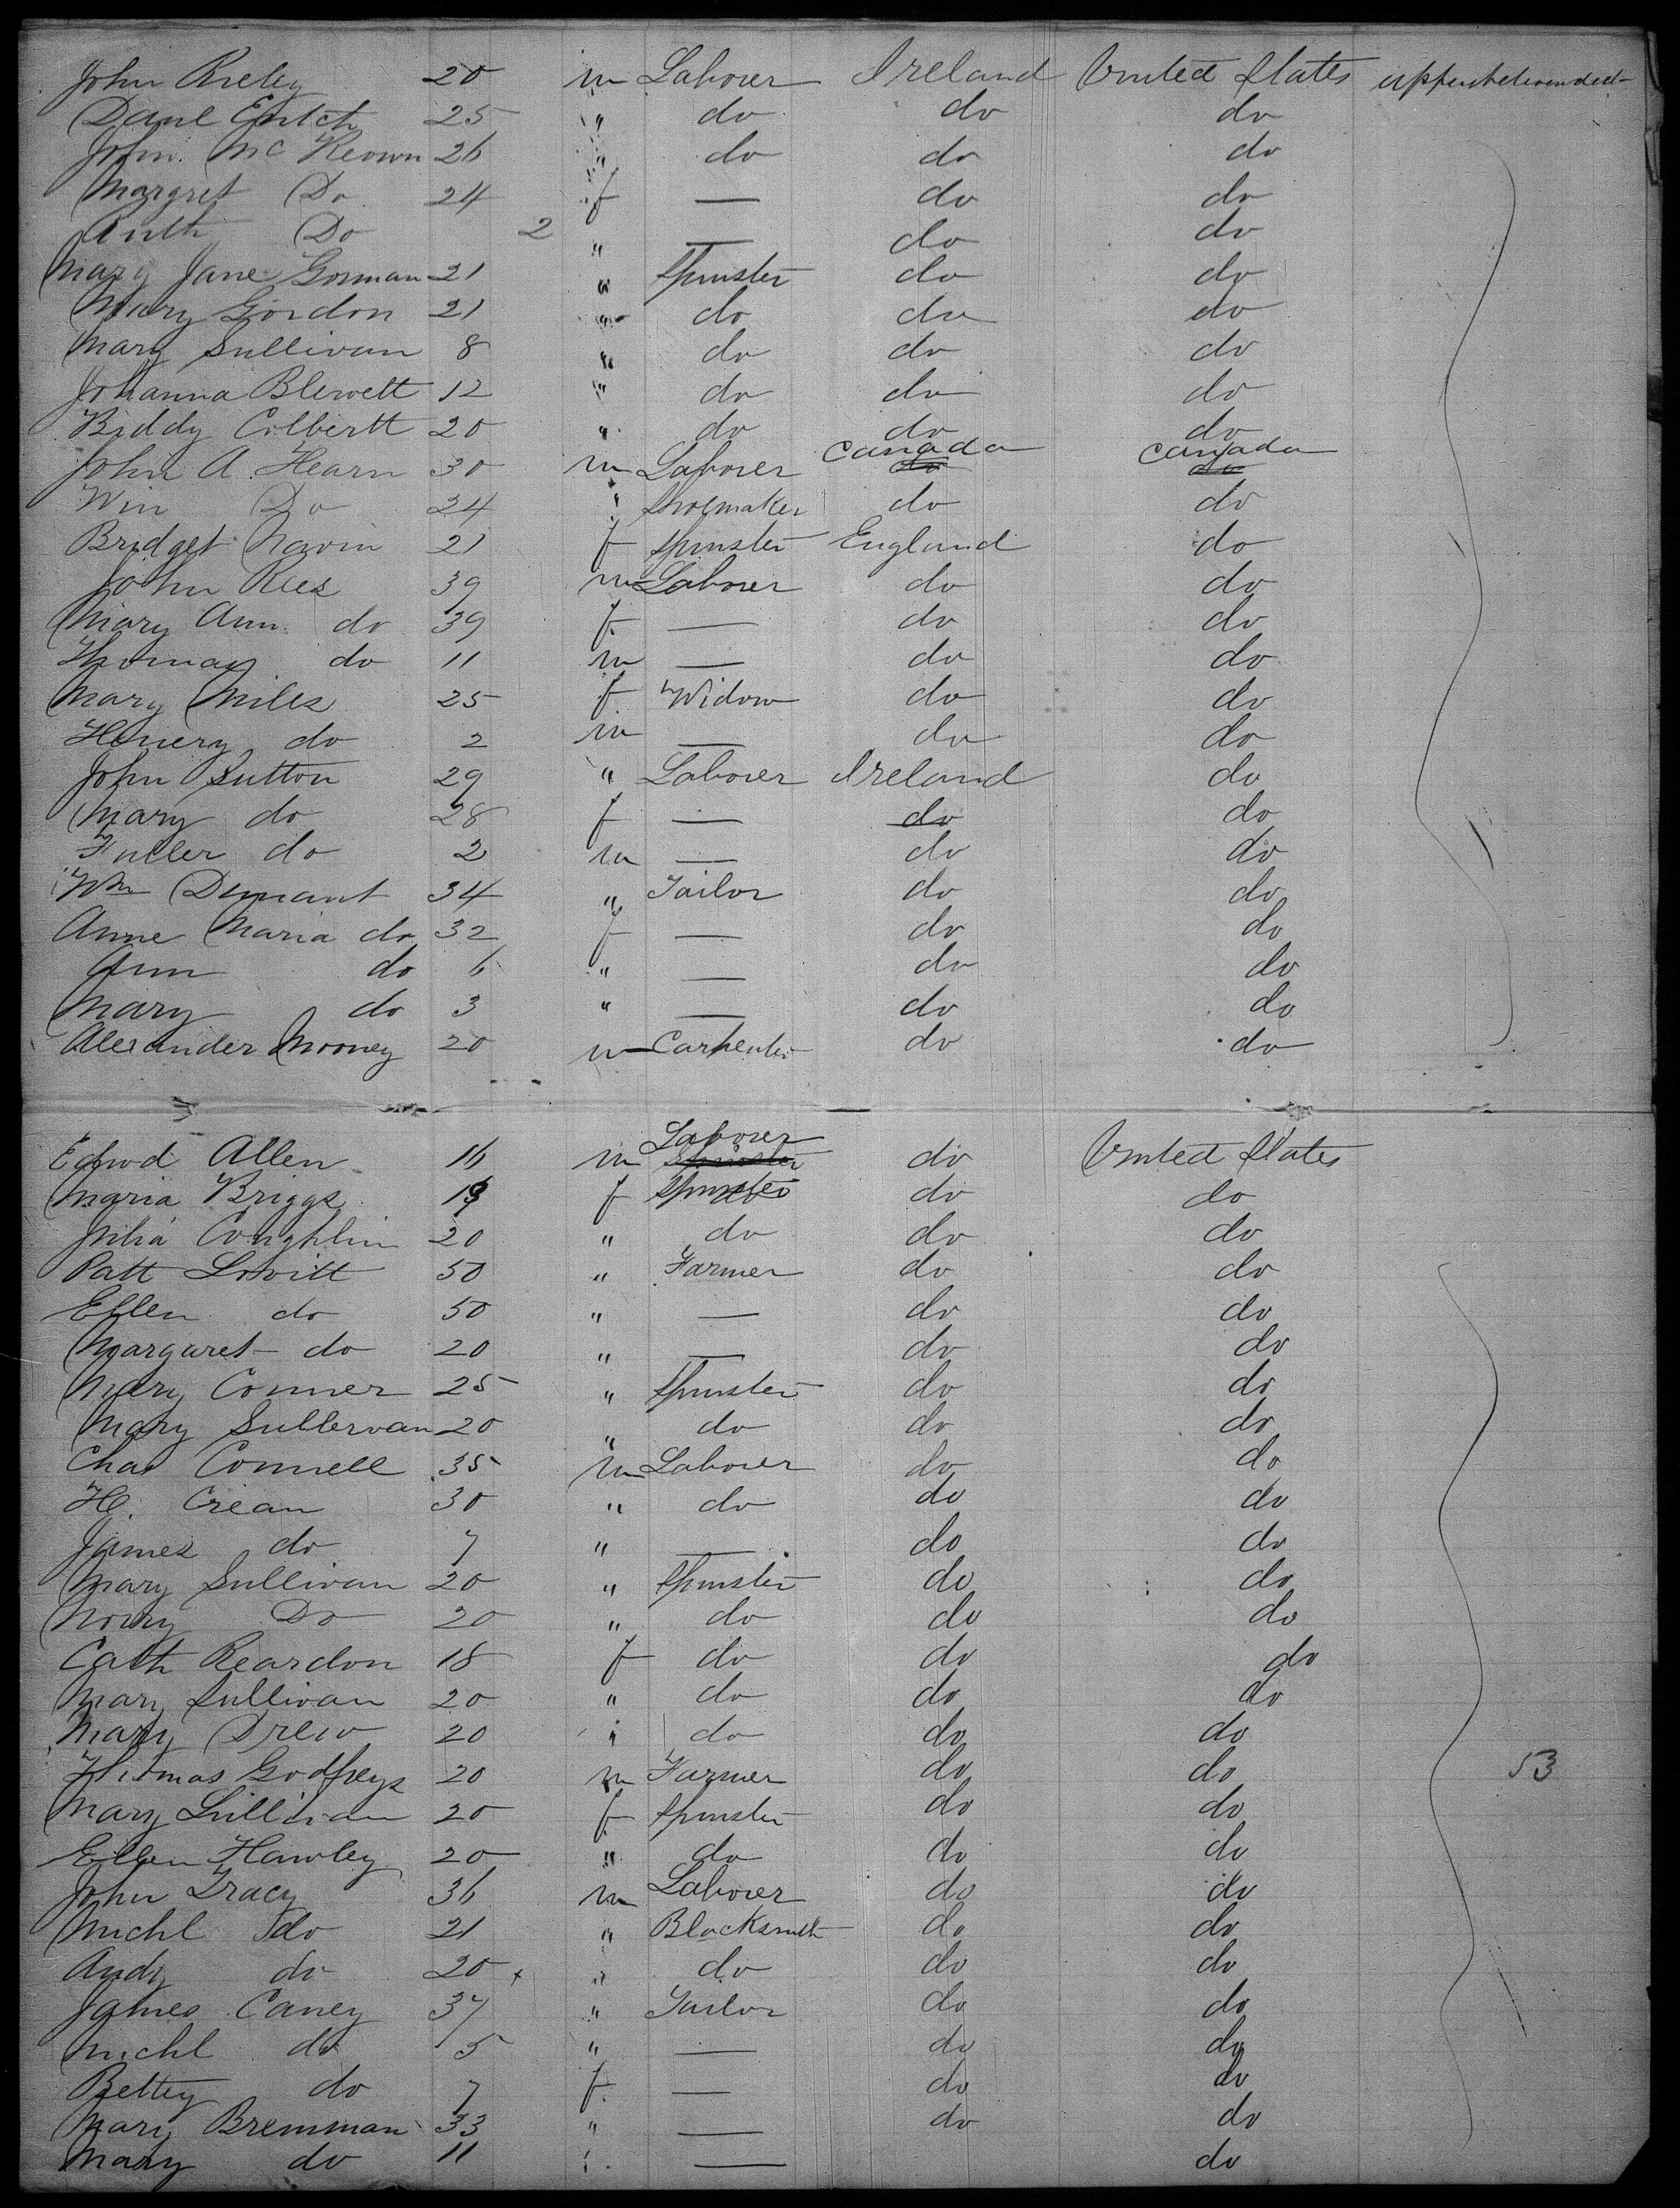 John Rieley 20 m Laborer Ireland United States upper between deck
Danl Entch 25 " do do do
John Mc Keown 26 " do do do
Margret Do 24 f — do do
Do 2 " — do do
Mary Jane Gorman 21 " Spinster do do
Mary Gordon 21 " do do do
Mary Sullivan 8 " do do do
Johanna Blewett 12 " do do do
Biddy Colbertt 20 " do do do
John A. Hearn 30 m Laborer Canada do Canada do
Wm Do 24 " Shoemaker do do
Bridget Navin 21 f Spinster England do
John Rees 39 m Laborer do do
Mary Ann do 39 f — do do
Thomas do 11 m — do do
Mary Miles 25 f Widow do do
Henery do 2 m — do do
John Sutton 29 " Laborer Ireland do
Mary do 28 f — do do
Fuller do 2 m — do do
Wm Dumant 34 " Tailor do do
Anne Maria do 32 f — do do
Ann do 6 " — do do
Mary do 3 " — do do
Alexander Mooney 20 m Carpenter do do
Edwd Allen 16 m Laborer Spinster do United States
Maria Briggs 19 f Spinster do do
Julia Coughlin 20 " do do do
Patt Lovitt 50 " Farmer do do
Ellen do 50 " — do do
Margaret do 20 " — do do
Mary Conner 25 " Spinster do do
Mary Sullervan 20 " do do do
Chas Connell 35 m Laborer do do
H. Crean 30 " do do do
James do 7 " — do do
Mary Sullivan 20 " Spinster do do
Do 20 " do do do
Cath Reardon 18 f do do do
Mary Sullivan 20 " do do do
Mary Drew 20 " do do do
Thomas Godfreys 20 m Farmer do do 53
Mary Sullivan 20 f Spinster do do
Ellen Hawley 20 " do do do
John Tracy 36 m Laborer do do
Michl do 21 " Blacksmith do do
Andy do 20 x " do do do
James Caney 37 " Tailor do do
Michl do 5 " — do do
Bettey do 7 f — do do
Mary Bremman 33 " — do do
Mary do 11 " — do